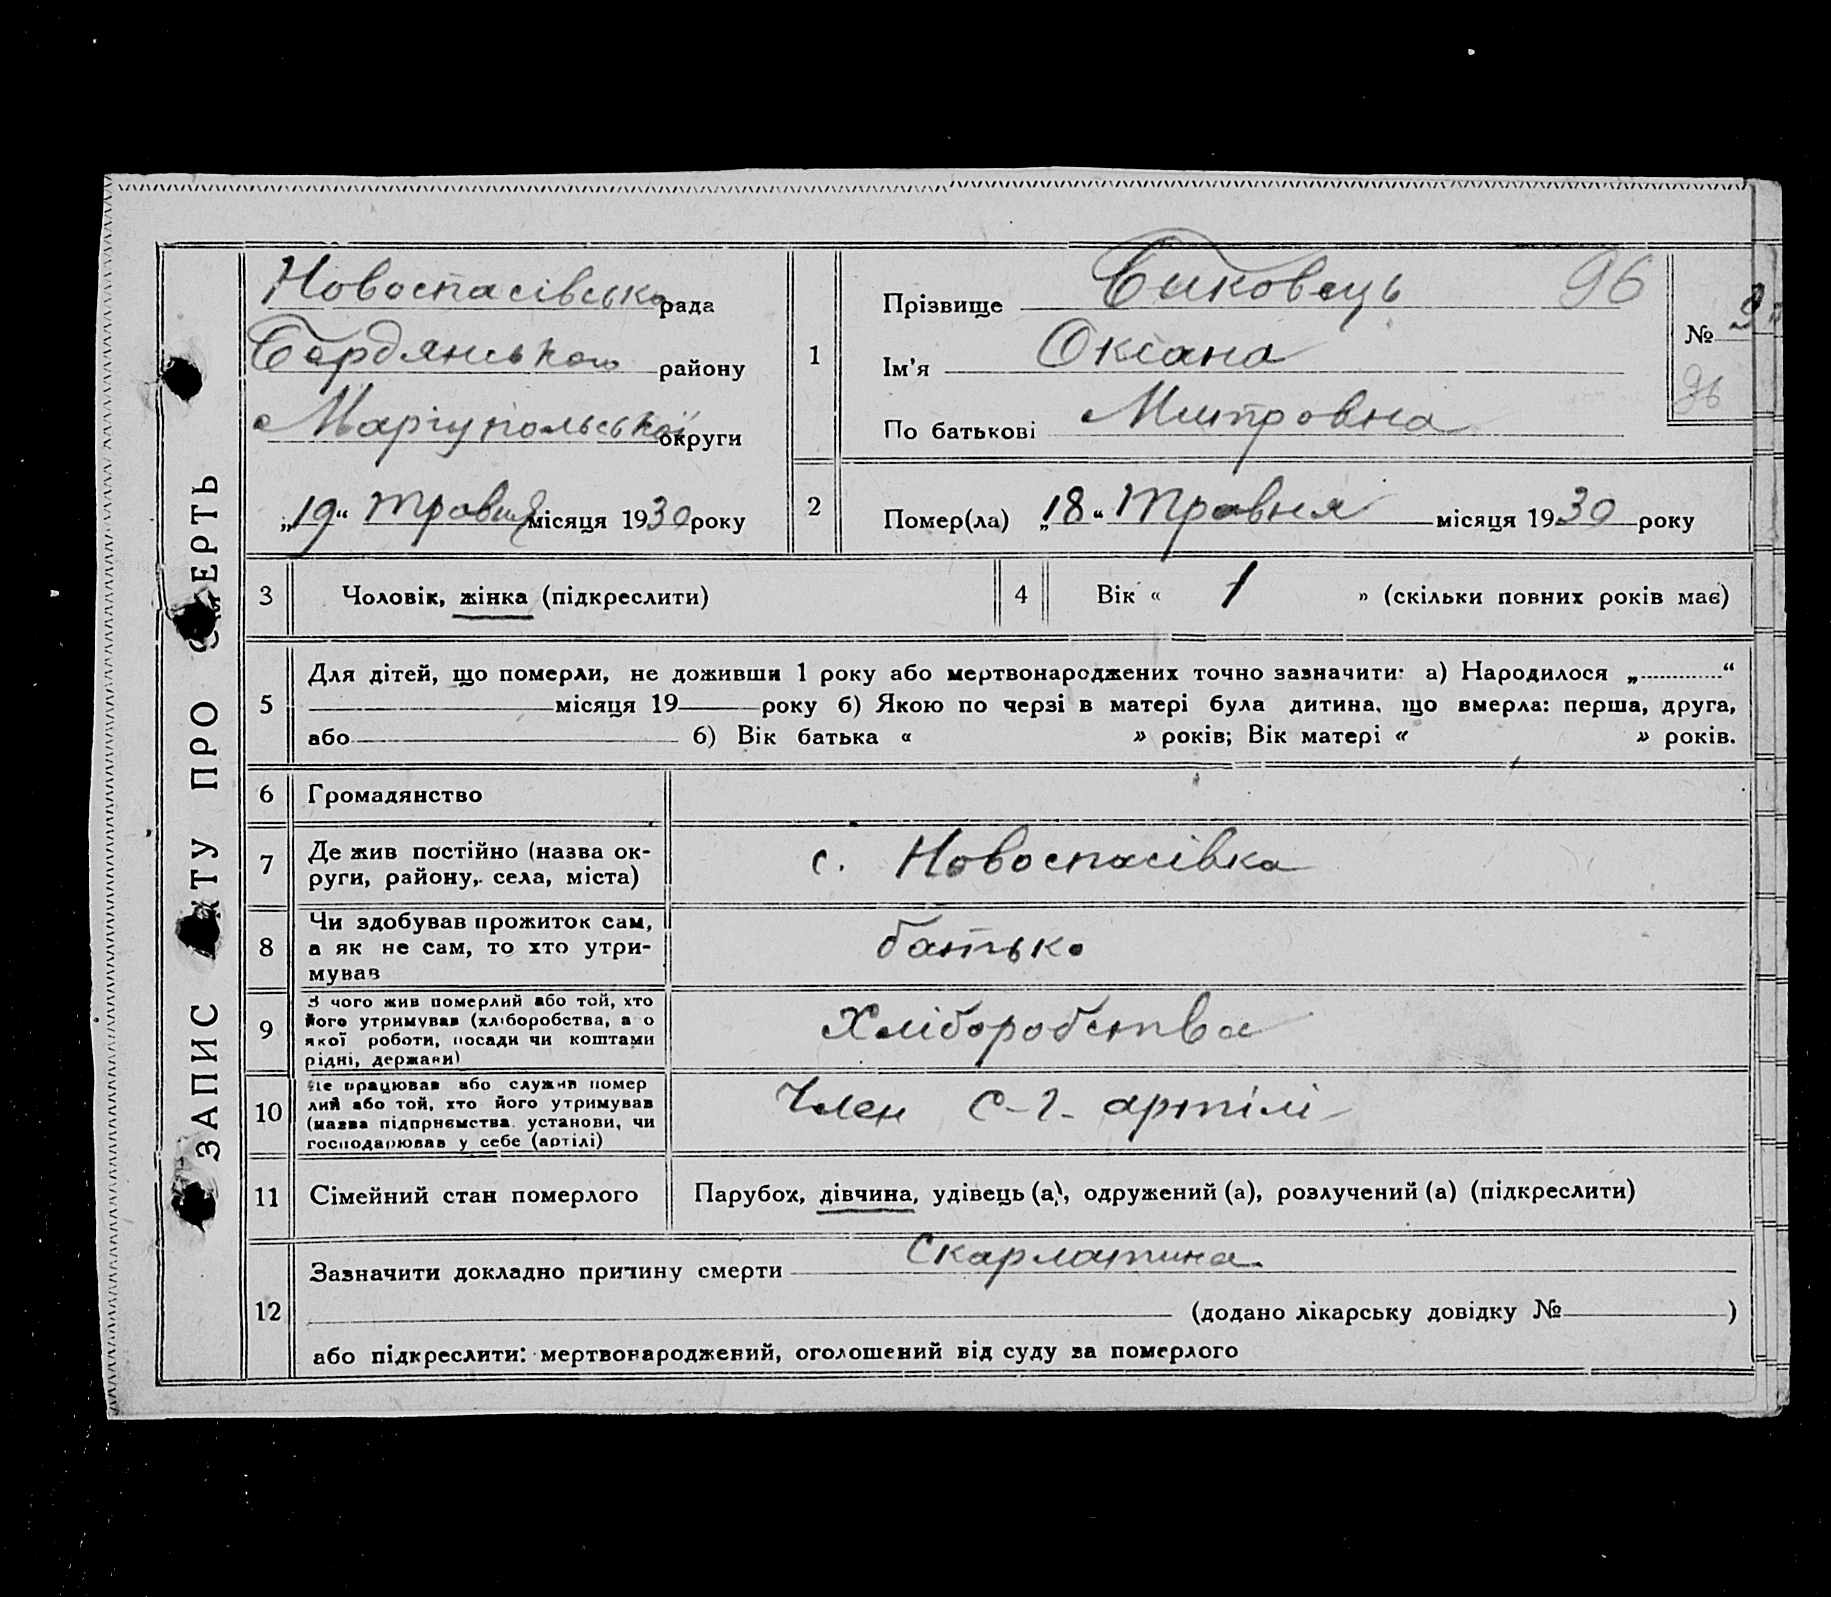 ЗАПИС АКТУ ПРО СМЕРТЬ
Новоспасівська рада
Бердянського району
Маріупольської округи
„19“ травня місяця 1930 року
1
Прізвище Биковець 96
Ім’я Оксана
По батькові Митровна
№
96
2 Помер(ла) „18“ травня місяця 1930 року
3 Чоловік, жінка (підкреслити)
4 Вік « 1 » (скільки повних років має)
5
Для дітей, що померли, не доживши 1 року або мертвонароджених точно зазначити: а) Народилося „ “
місяця 19 року б) Якою по черзі в матері була дитина, що вмерла: перша, друга,
або 6) Вік батька « » років; Вік матері « » років.
6 Громадянство
7 Де жив постійно (назва ок-
руги, району, села, міста)
с. Новоспасівка
8 Чи здобував прожиток сам,
а як не сам, то хто утри-
мував
батько
9 З чого жив померлий або той, хто
його утримував (хліборобства, а о
якої роботи, посади чи коштами
рідні, держави)
Хліборобства
10 Де працював або служив помер
лий або той, хто його утримував
(назва підприємства установи, чи
господарював у себе (артілі)
Член с-г. артілі
11 Сімейний стан померлого
Парубок, дівчина, удівець (а), одружений (а), розлучений (а) (підкреслити)
12
Зазначити докладно причину смерти Скарлатина
(додано лікарську довідку № )
або підкреслити: мертвонароджений, оголошений від суду за померлого